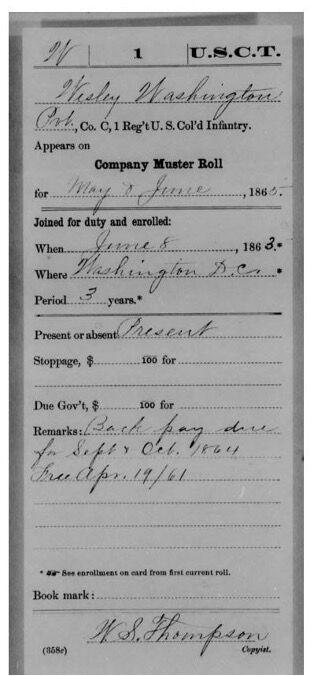 W 1 U.S.C.T.
Wesley Washington
Pvt., Co. C, 1 Reg't U. S. Col'd Infantry.
Appears on
Company Muster Roll
for May & June, 1865.
Joined for duty and enrolled:
When June 8, 1863.*
Where Washington D.C. *
Period 3 years.*
Present or absent Present
Stoppage, $ 100 for
Due Gov't, $ 100 for
Remarks: Back pay due
for Sept & Oct. 1864
Free Apr. 19/61
* See enrollment on card from first current roll.
Book mark:
W. S. Thompson
(358c) Copyist.